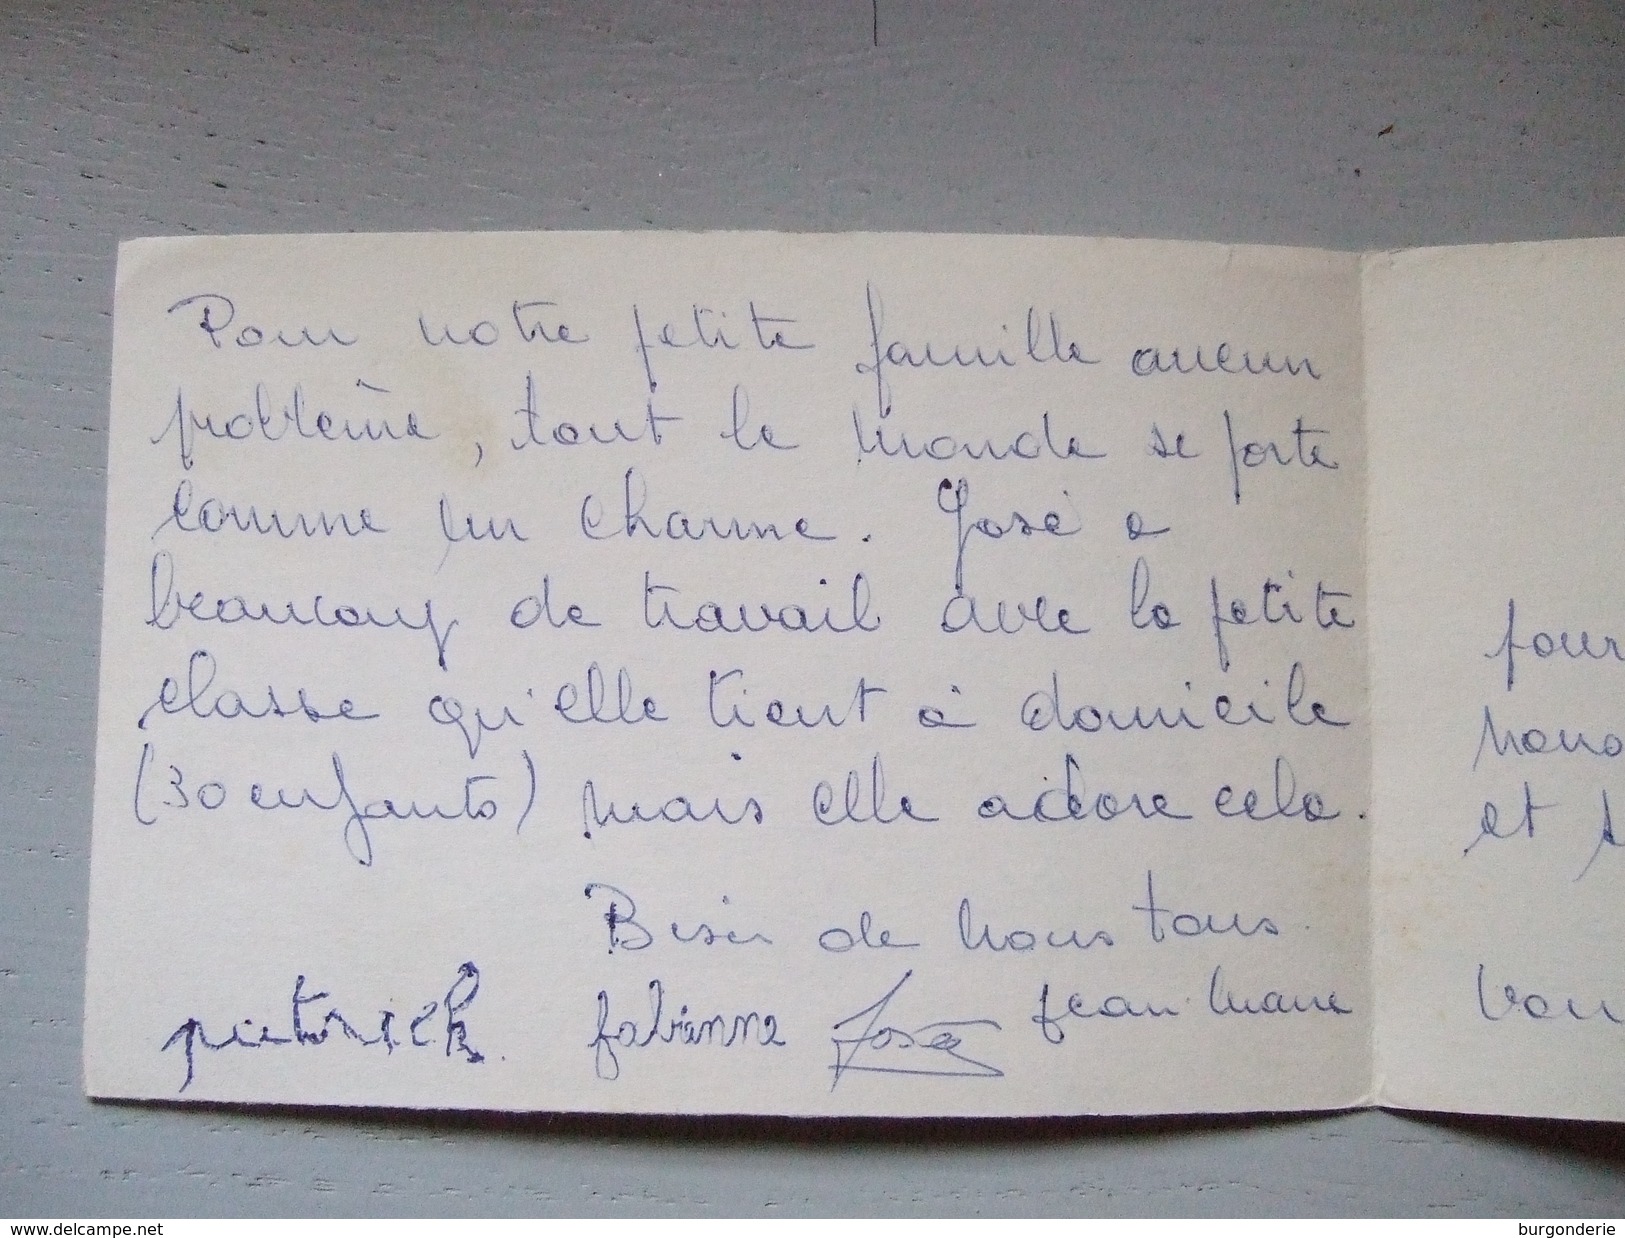 Pour notre petite famille aucun
problème, tout le monde se porte
comme un charme. José a
beaucoup de travail avec la petite
classe qu'elle tient à domicile
(30 enfants) mais elle adore cela.
Bises de nous tous.
patrick. fabienne José Jean Marie
pour
et
www.delcampe.net
burgonderie